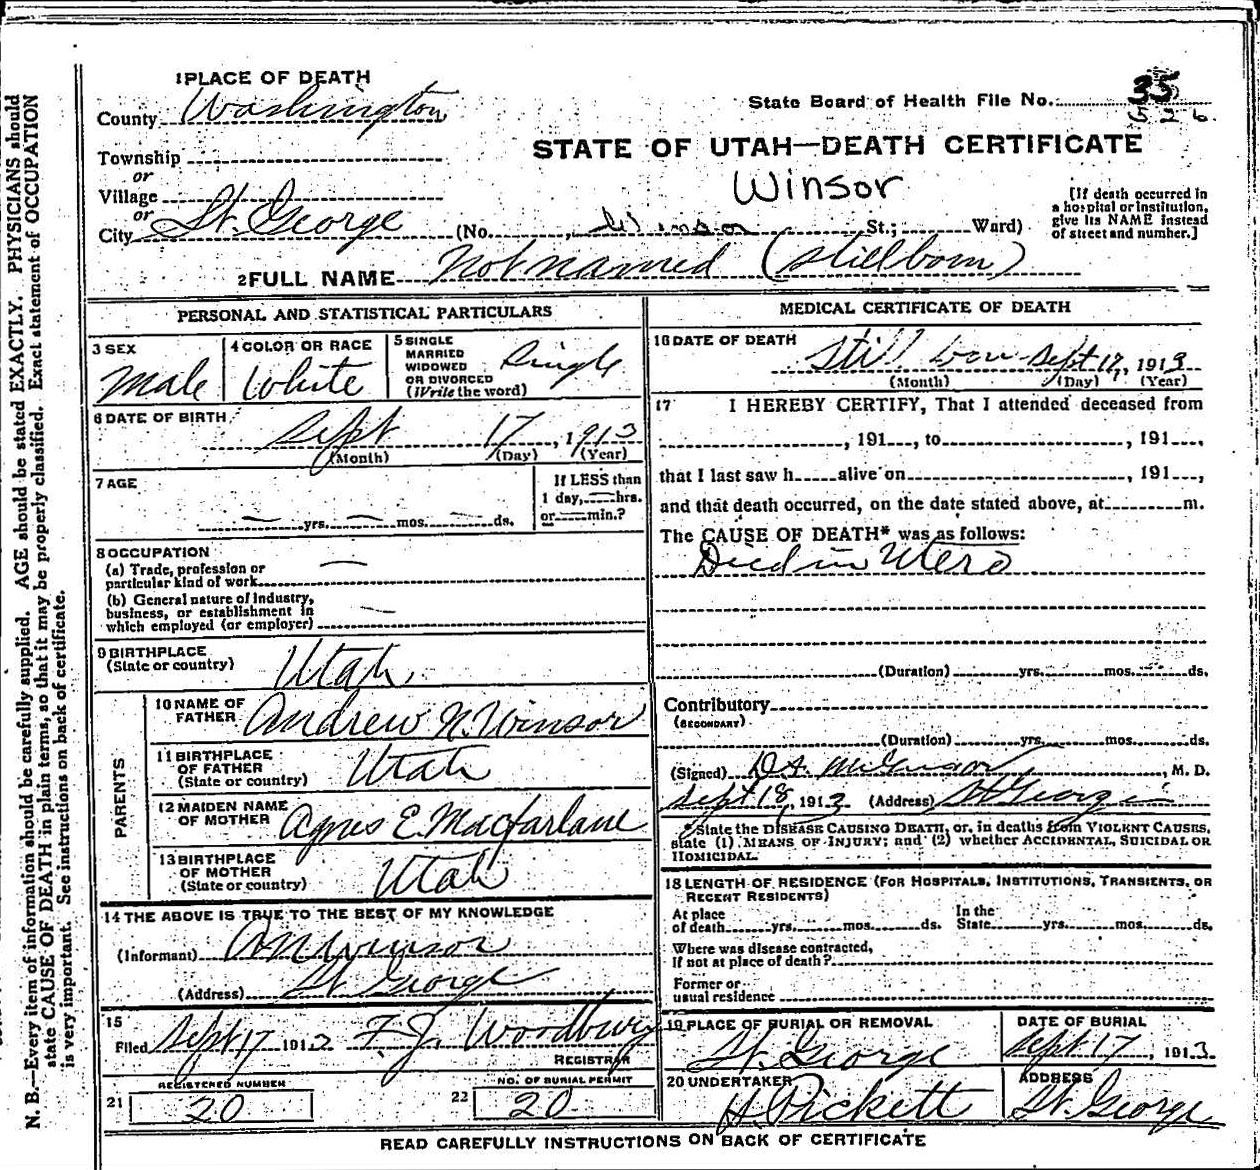 1 PLACE OF DEATH
County Washington
State Board of Health File No. 35
Township
or
Village
or
City St. George
STATE OF UTAH—DEATH CERTIFICATE
Winsor
(No. , Winsor St.; Ward)
[If death occurred in a hospital or institution, give its NAME instead of street and number.]
2 FULL NAME Not named (stillborn)
PERSONAL AND STATISTICAL PARTICULARS
3 SEX
Male
4 COLOR OR RACE
White
5 SINGLE
MARRIED
WIDOWED
OR DIVORCED
(Write the word)
Single
6 DATE OF BIRTH
Sept 17, 1913
(Month) (Day) (Year)
7 AGE
yrs. mos. ds.
If LESS than
1 day, hrs.
or min.?
8 OCCUPATION
(a) Trade, profession or
particular kind of work
(b) General nature of Industry,
business, or establishment in
which employed (or employer)
9 BIRTHPLACE
(State or country)
Utah
PARENTS
10 NAME OF
FATHER
Andrew N. Winsor
11 BIRTHPLACE
OF FATHER
(State or country)
Utah
12 MAIDEN NAME
OF MOTHER
Agnes E. Macfarlane
13 BIRTHPLACE
OF MOTHER
(State or country)
Utah
14 THE ABOVE IS TRUE TO THE BEST OF MY KNOWLEDGE
(Informant) A N Winsor
(Address) St. George
15
Filed Sept 17 1913 F. J. Woodbury
REGISTRAR
REGISTERED NUMBER
21 20
NO. OF BURIAL PERMIT
22 20
MEDICAL CERTIFICATE OF DEATH
16 DATE OF DEATH
Still born Sept 17, 1913
(Month) (Day) (Year)
17 I HEREBY CERTIFY, That I attended deceased from
, 191 , to , 191 ,
that I last saw h alive on , 191 ,
and that death occurred, on the date stated above, at m.
The CAUSE OF DEATH* was as follows:
Died in Utero
(Duration) yrs. mos. ds.
Contributory
(SECONDARY)
(Duration) yrs. mos. ds.
(Signed) , M. D.
Sept 18, 1913 (Address) St George
* State the DISEASE CAUSING DEATH, or, in deaths from VIOLENT CAUSES,
state (1) MEANS OF INJURY; and (2) whether ACCIDENTAL, SUICIDAL OR
HOMICIDAL.
18 LENGTH OF RESIDENCE (FOR HOSPITALS, INSTITUTIONS, TRANSIENTS, OR
RECENT RESIDENTS)
At place
of death yrs. mos. ds.
In the
State yrs. mos. ds.
Where was disease contracted,
If not at place of death?
Former or
usual residence
19 PLACE OF BURIAL OR REMOVAL
St. George
DATE OF BURIAL
Sept 17, 1913
20 UNDERTAKER
H Pickett
ADDRESS
St. George
READ CAREFULLY INSTRUCTIONS ON BACK OF CERTIFICATE
N. B.—Every item of information should be carefully supplied. AGE should be stated EXACTLY. PHYSICIANS should
state CAUSE OF DEATH in plain terms, so that it may be properly classified. Exact statement of OCCUPATION
is very important. See instructions on back of certificate.